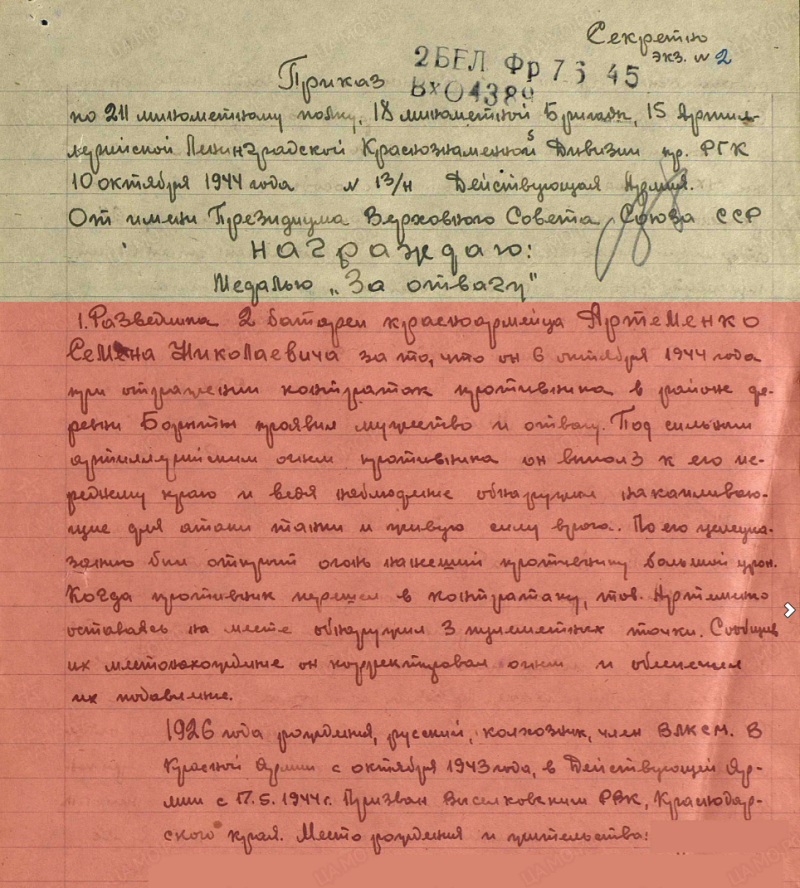 Секретно
экз. N 2
2 БЕЛ Фр 7 6 45
Вх 04389
Приказ
по 211 минометному полку, 18 минометной Бригаде, 15 Артил-
лерийской Ленинградской Краснознаменной Дивизии пр. РГК
10 октября 1944 года N 13/н Действующая Армия.
От имени Президиума Верховного Совета Союза ССР
награждаю:
Медалью „За отвагу"
1. Разведчика 2 батареи красноармейца Артеменко
Семена Николаевича за то, что он 6 октября 1944 года
при отражении контратак противника в районе де-
ревни проявил мужество и отвагу. Под сильным
артиллерийским огнем противника он выполз к его пе-
реднему краю и ведя наблюдение обнаружил накапливаю-
щие для атаки танки и живую силу врага. По его целеука-
занию был открыт огонь нанесший противнику большой урон.
Когда противник перешел в контратаку, тов. Артеменко
оставаясь на месте обнаружил 3 пулеметных точки. Сообщив
их местонахождение он корректировал огнем и обеспечил
их подавление.
1926 года рождения, русский, колхозник, член ВЛКСМ. В
Красной Армии с октября 1943 года, в Действующей Ар-
мии с 17.5.1944 г. Призван Выселковским РВК, Краснодар-
ского края. Место рождения и жительства: